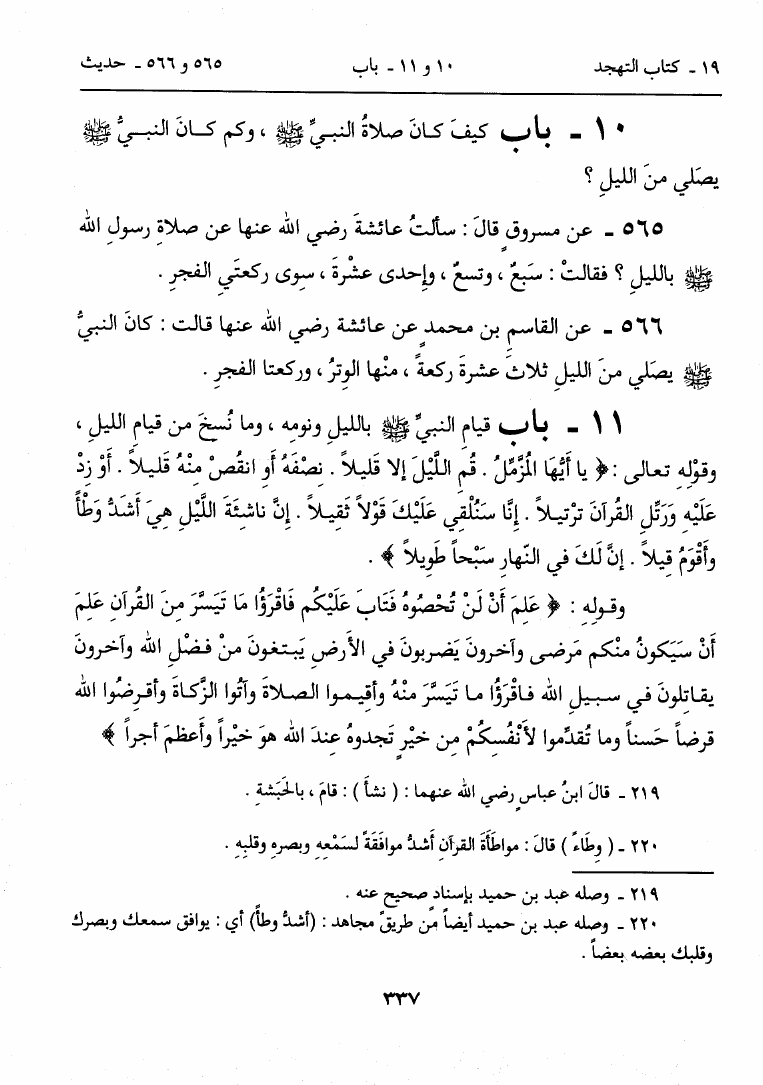 ١٩ - كتاب التهجد ١٠ و ١١ - باب ٥٦٥ و ٥٦٦ - حديث
١٠ - باب كيفَ كانَ صلاةُ النبيِّ ﷺ ، وكم كـانَ النبـيُّ ﷺ
يصَلي منَ الليلِ ؟
٥٦٥ - عن مسروقٍ قالَ : سألتُ عائشةَ رضي الله عنها عن صلاةِ رسولِ الله
ﷺ بالليلِ ؟ فقالتْ : سَبعٌ ، وتسعٌ ، وإحدى عشْرةَ ، سِوى ركعتَي الفجرِ .
٥٦٦ - عن القاسمِ بن محمدٍ عن عائشة رضي الله عنها قالت : كانَ النبيُّ
ﷺ يصَلي منَ الليلِ ثلاثَ عشرةَ ركعةً ، منْها الوِترُ ، وركعتا الفجرِ .
١١ - باب قيامِ النبيِّ ﷺ بالليلِ ونومِه ، وما نُسخَ من قيامِ الليلِ ،
وقوْلِه تعالى : ﴿ يا أَيُّهَا الْمُزَّمِّلُ . قُمِ اللَّيْلَ إلا قَليـلاً . نِصْفَهُ أوِ انقُصْ مِنْهُ قَليـلاً . أوْ زِدْ
عَلَيْهِ وَرَتِّلِ القُرآنَ ترْتيـلاً . إنَّا سَنُلْقي عَلَيْكَ قَوْلاً ثَقيـلاً . إنَّ ناشِئَةَ اللَّيْلِ هِيَ أشَدُّ وَطْأً
وأَقْوَمُ قيلاً . إنَّ لَكَ في النّهارِ سَبْحاً طَويلاً ﴾ .
وقـولِهِ : ﴿ عَلِمَ أَنْ لَنْ تُحْصُوهُ فَتَابَ عَلَيْكُم فَاقْرَؤُا مَا تَيَسَّرَ مِنَ القُرآنِ عَلِمَ
أَنْ سَيَكونُ منْكم مَرضى وآخرونَ يَضرِبونَ في الأَرضِ يَبـتغونَ منْ فـضْلِ الله وآخرونَ
يقـاتِلونَ في سـبـيلِ الله فـاقْرَؤُا مـا تَيَسَّرَ منْهُ وأقيـمـوا الصـلاةَ وآتُوا الزَّكـاةَ وأقـرِضُوا الله
قرضاً حَسناً وما تُقدِّموا لأَنْفُسِكُمْ مِن خيْرٍ تَجِدوهُ عندَ الله هوَ خيْراً وأعظمَ أجراً ﴾
٢١٩ - قالَ ابنُ عباسٍ رضي الله عنهما : ( نشأَ ) : قامَ ، بالحَبَشةِ .
٢٢٠ - ( وِطاءً ) قالَ : مواطَأَةَ القرآنِ أَشدُّ موافَقَةً لسَمْعِهِ وبصرِه وقلبِه .
٢١٩ - وصله عبد بن حميد بإسناد صحيح عنه .
٢٢٠ - وصله عبد بن حميد أيضاً من طريق مجاهد : (أشدُّ وطأً) أي : يوافق سمعك وبصرك
وقلبك بعضه بعضاً .
٣٣٧